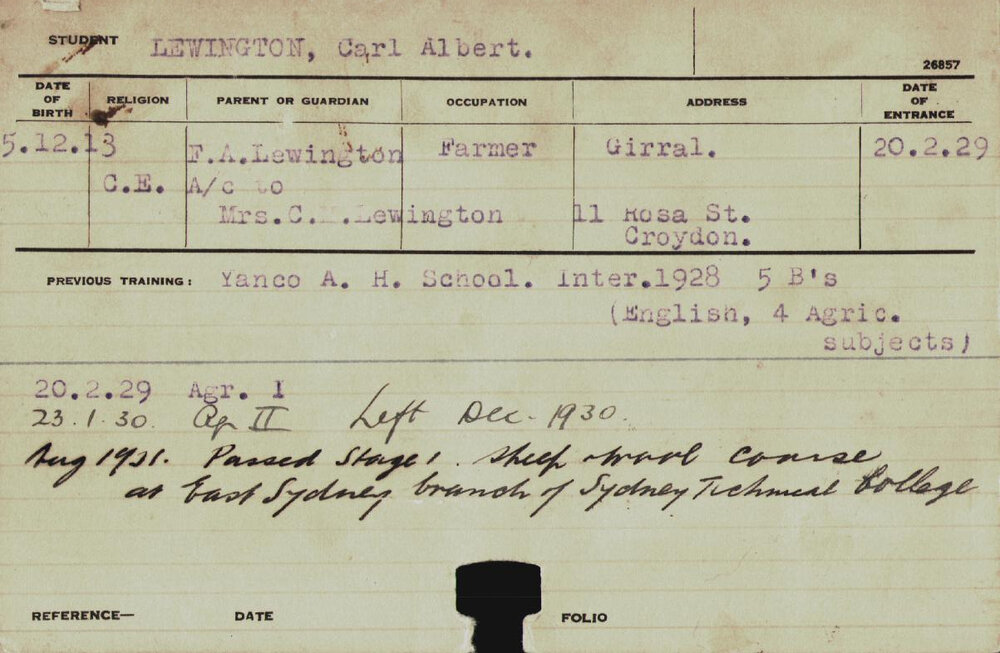 STUDENT LEWINGTON, Carl Albert.
26857
DATE OF BIRTH RELIGION PARENT OR GUARDIAN OCCUPATION ADDRESS DATE OF ENTRANCE
5.12.13 F.A.Lewington Farmer Girral. 20.2.29
C.E. A/c to
Mrs.C. .Lewington 11 Rosa St.
Croydon.
PREVIOUS TRAINING: Yanco A. H. School. Inter.1928 5 B's
(English, 4 Agric.
subjects)
20.2.29 Agr. I
23.1.30. Ag II Left Dec. 1930.
Aug 1931. Passed Stage 1. Sheep & wool course
at East Sydney branch of Sydney Technical College
REFERENCE— DATE FOLIO